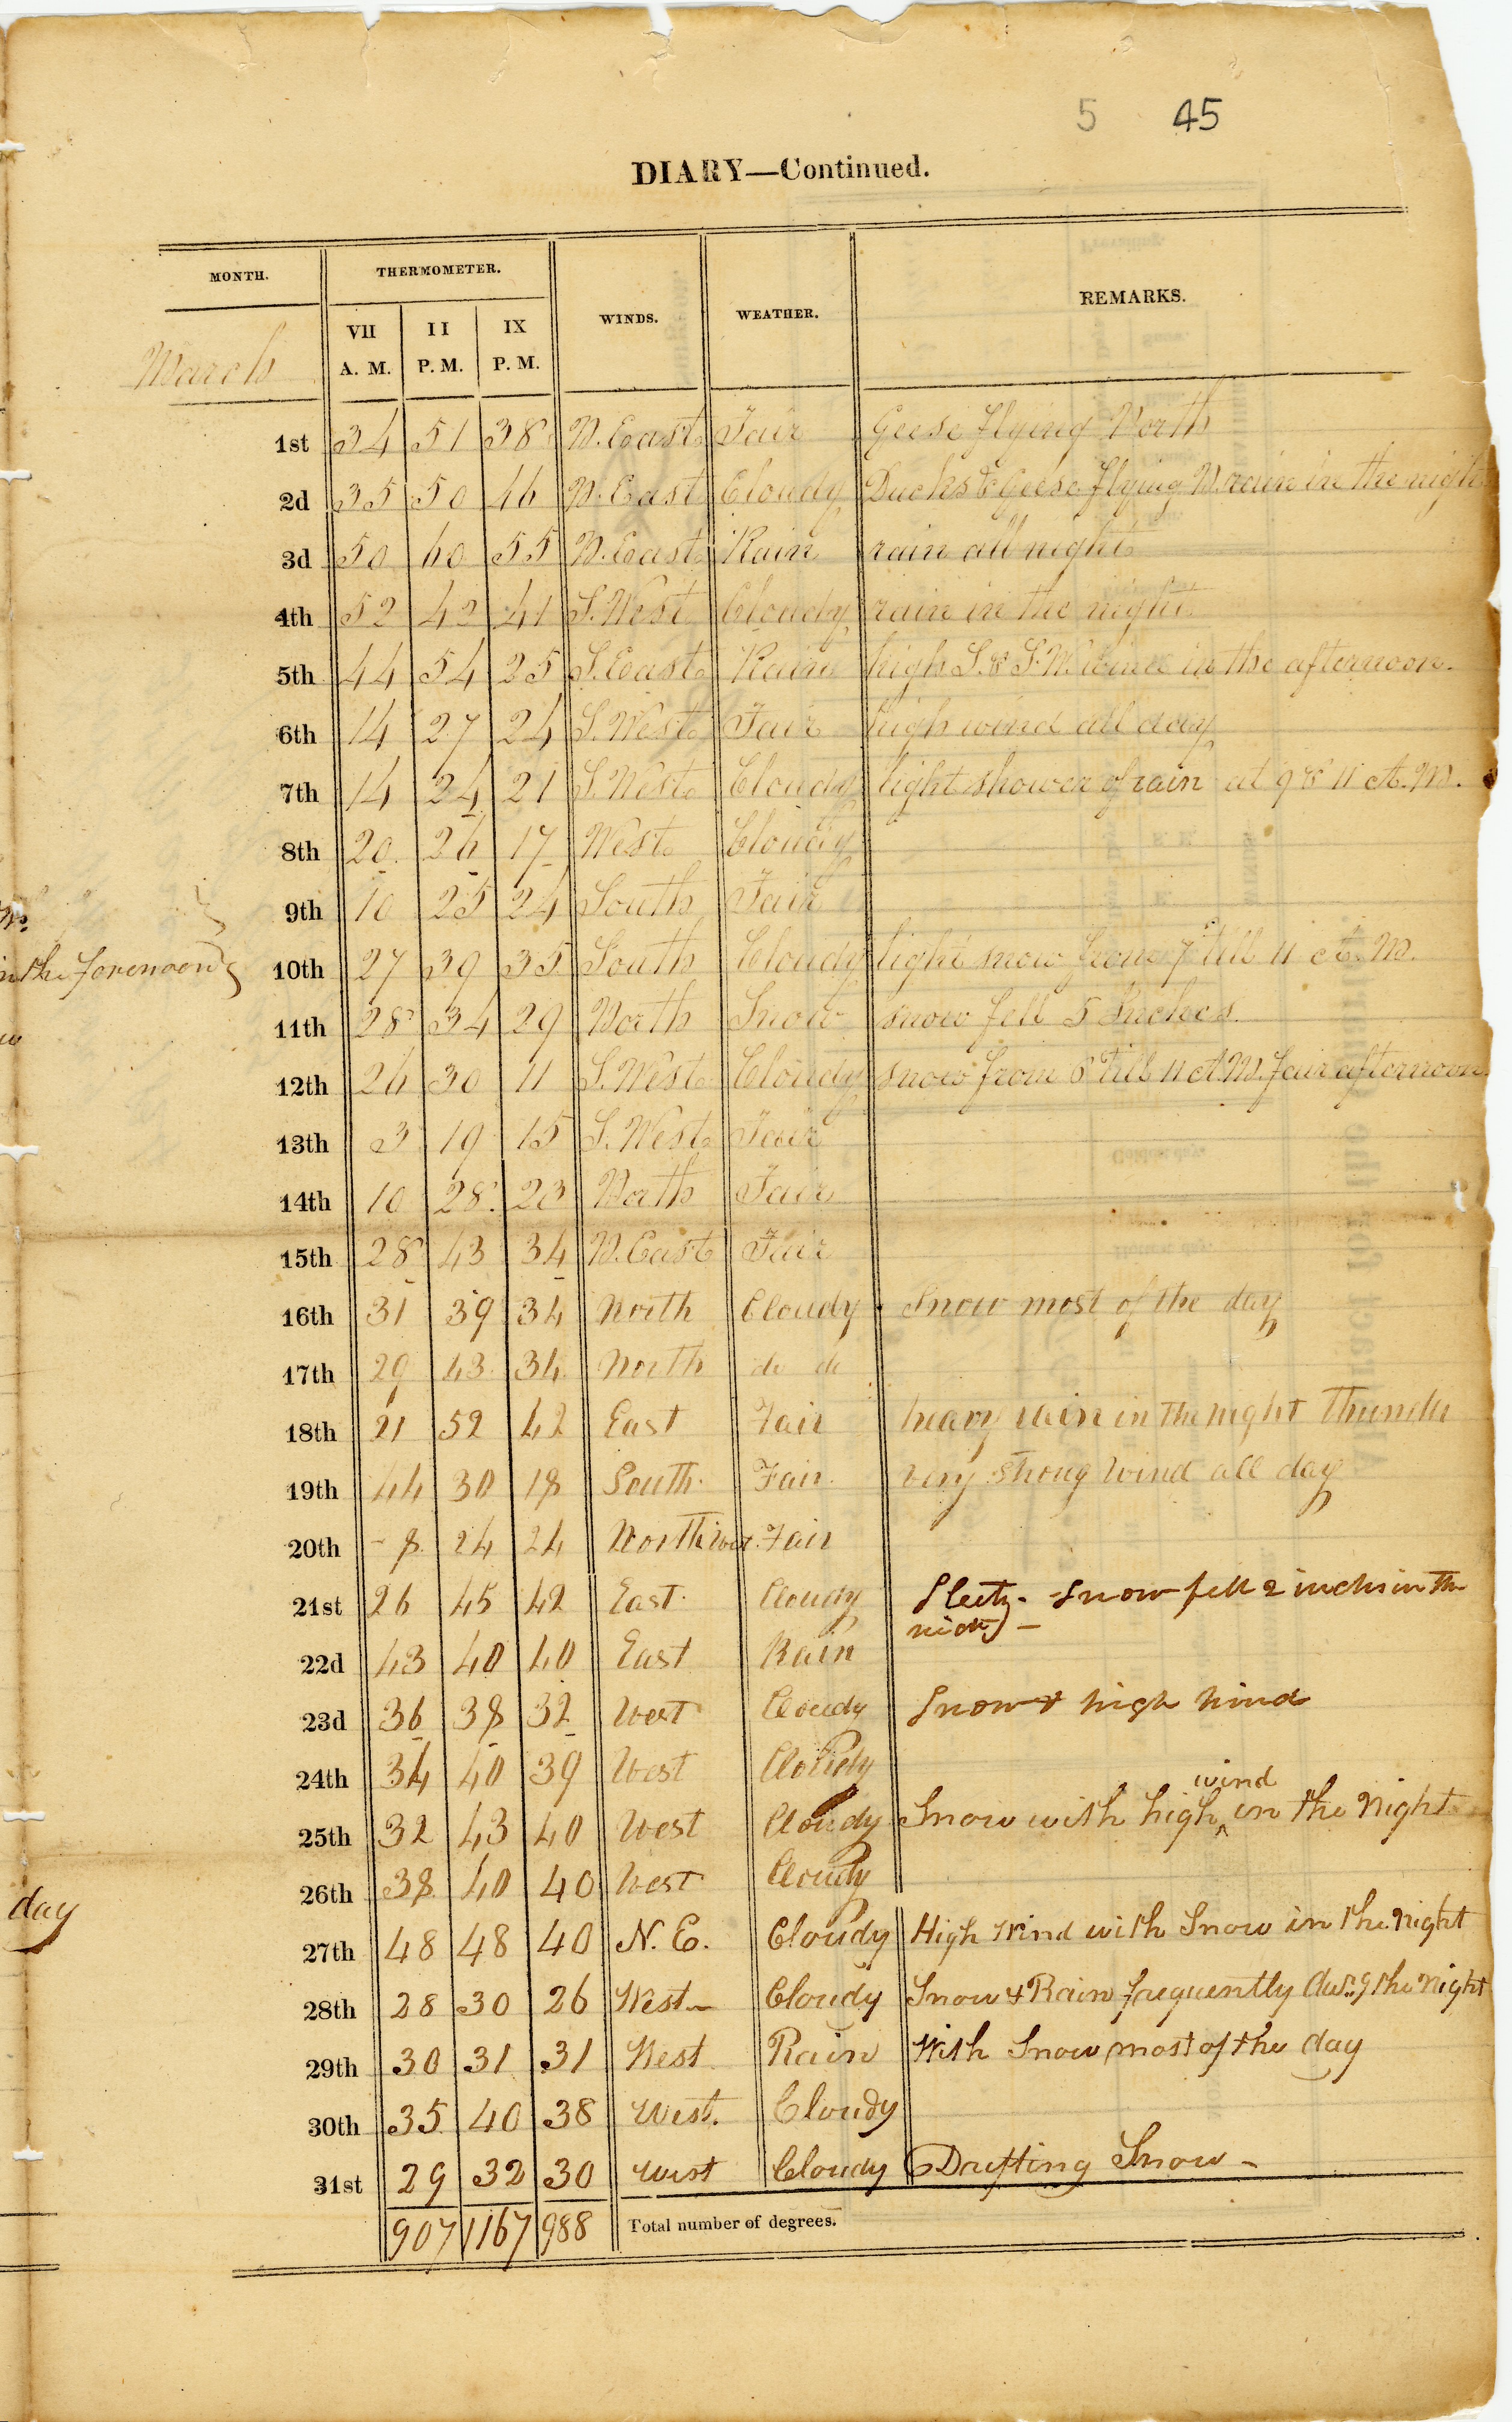 5 45
DIARY—Continued.
MONTH. THERMOMETER. WINDS. WEATHER. REMARKS.
VII II IX
A. M. P. M. P. M.
March
1st 34 51 38 N. East Fair Geese flying North
2d 35 50 46 N. East Cloudy Ducks & Geese flying N. rain in the nigh
3d 50 60 55 N. East Rain rain all night
4th 52 42 41 S. West Cloudy rain in the night
5th 44 54 25 S. East Rain high S. & S.W. wind in the afternoon.
6th 14 27 24 S. West Fair high wind all day
7th 14 24 21 S. West Cloudy light shower of rain at 9 & 11 A.M.
8th 20 26 17 West Cloudy
9th 10 25 24 South Fair
in the forenoon
10th 27 39 35 South Cloudy light snow from 7 till 11 A. M.
11th 28 34 29 North Snow snow fell 5 Inches.
12th 26 30 11 S. West Cloudy snow from 6 till 11 A.M. fair afternoon
13th 3 19 15 S. West Fair
14th 10 28 20 North Fair
15th 28 43 34 N. East Fair
16th 31 39 34 North Cloudy Snow most of the day
17th 29 43 34 North do do
18th 21 52 42 East Fair heavy rain in the night Thunder
19th 44 30 18 South Fair very strong wind all day
20th - 8 24 24 North Wes. Fair
21st 26 45 42 East Cloudy Sleety - Snow fell 2 inches in the
night -
22d 43 40 40 East Rain
23d 36 38 32 West Cloudy Snow & high wind
24th 34 40 39 West Cloudy
wind
25th 32 43 40 West Cloudy Snow with high ^ in the night
26th 38 40 40 West Cloudy
day
27th 48 48 40 N. E. Cloudy High Wind with Snow in the night
28th 28 30 26 West Cloudy Snow & Rain frequently dur.g the night
29th 30 31 31 West Rain With Snow most of the day
30th 35 40 38 West. Cloudy
31st 29 32 30 West Cloudy Drifting Snow -
907 1167 988 Total number of degrees.